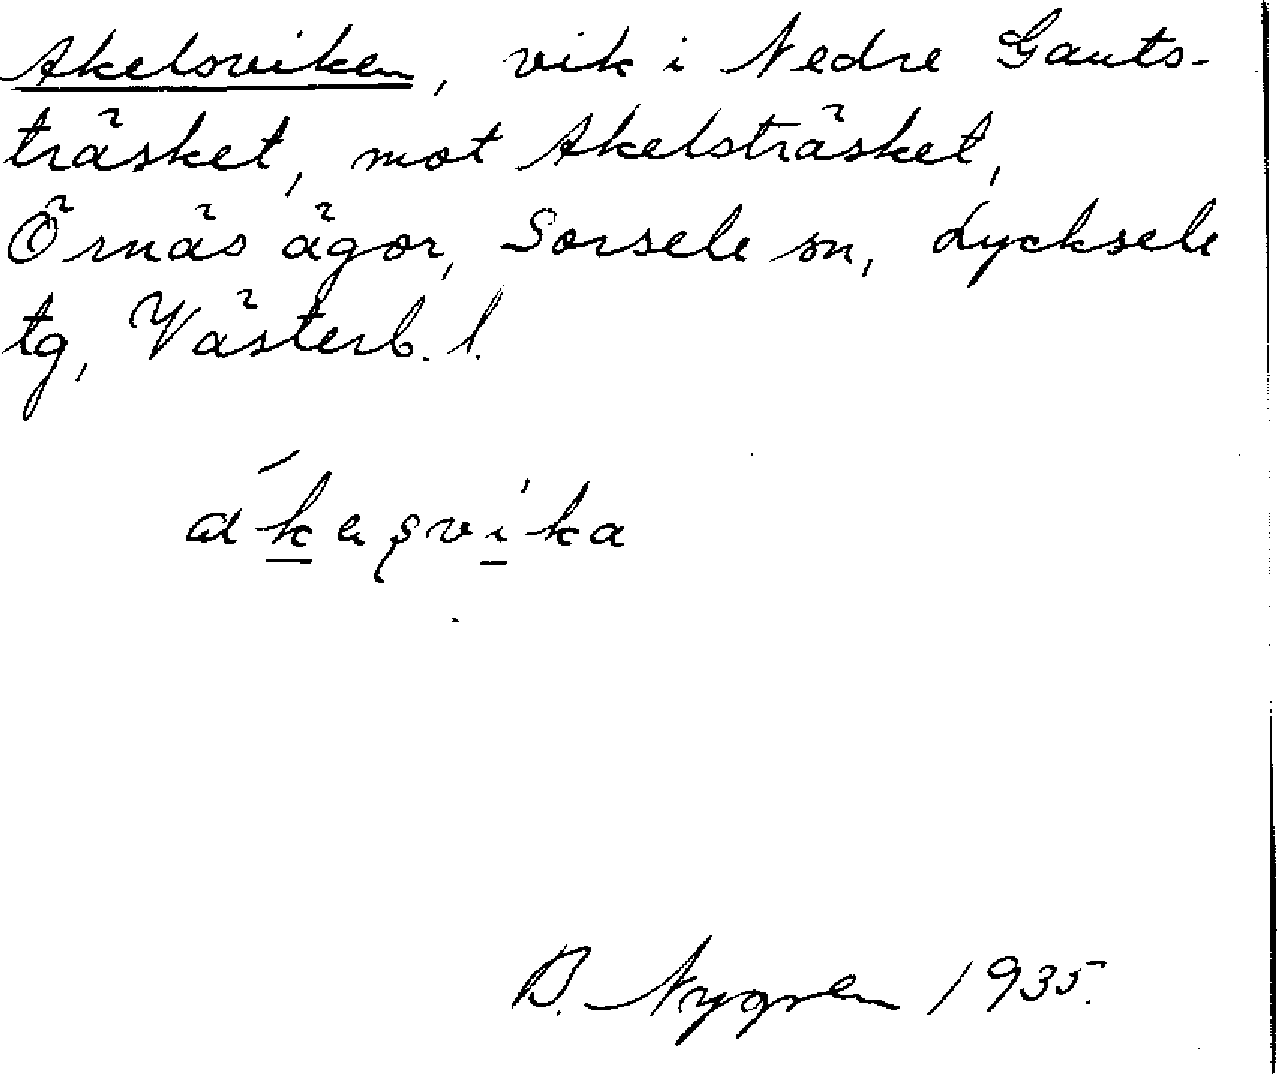 Akelsviken, vik i Nedre Gauts-
träsket, mot Akelsträsket,
Örnäs ägor, Sorsele sn, Lycksele
tg, Västerb. l.
ákeşvika
B. Nygren 1935.